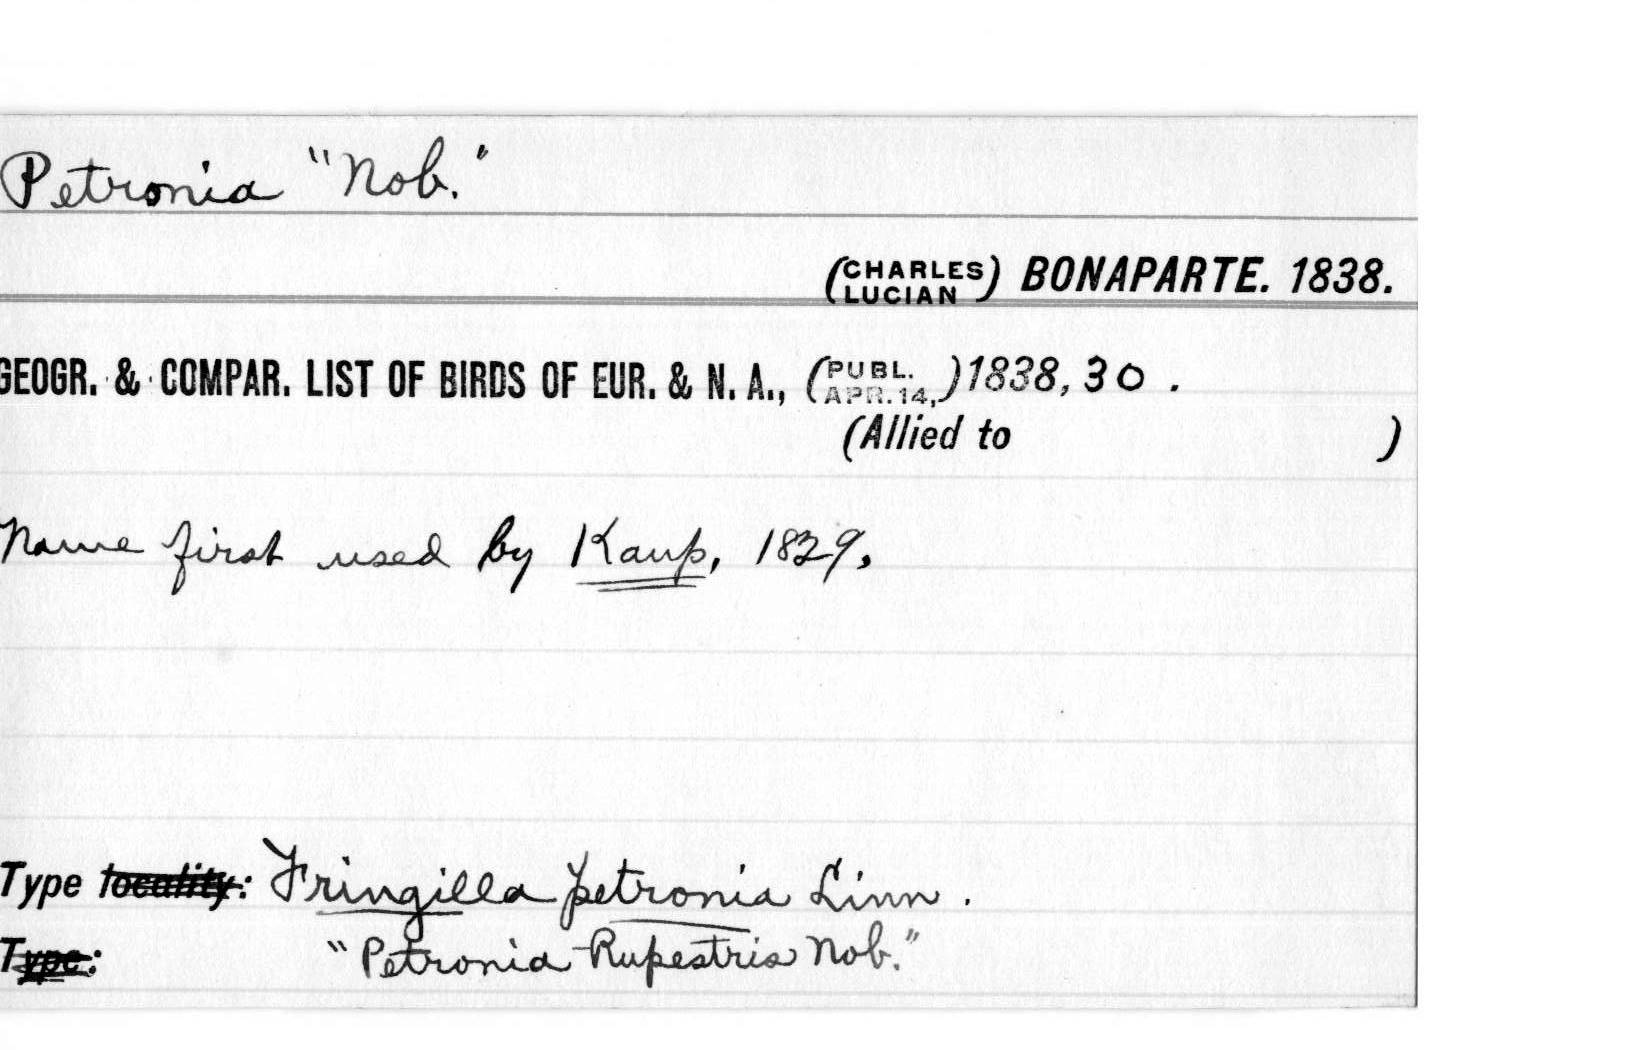 Petronia "Nob."
(CHARLES LUCIAN) BONAPARTE. 1838.
GEOGR. & COMPAR. LIST OF BIRDS OF EUR. & N. A., (PUBL. APR. 14,) 1838, 30.
(Allied to )
Name first used by Kaup, 1829.
Type locality: Fringilla petronia Linn.
Type: "Petronia Rupestris Nob."